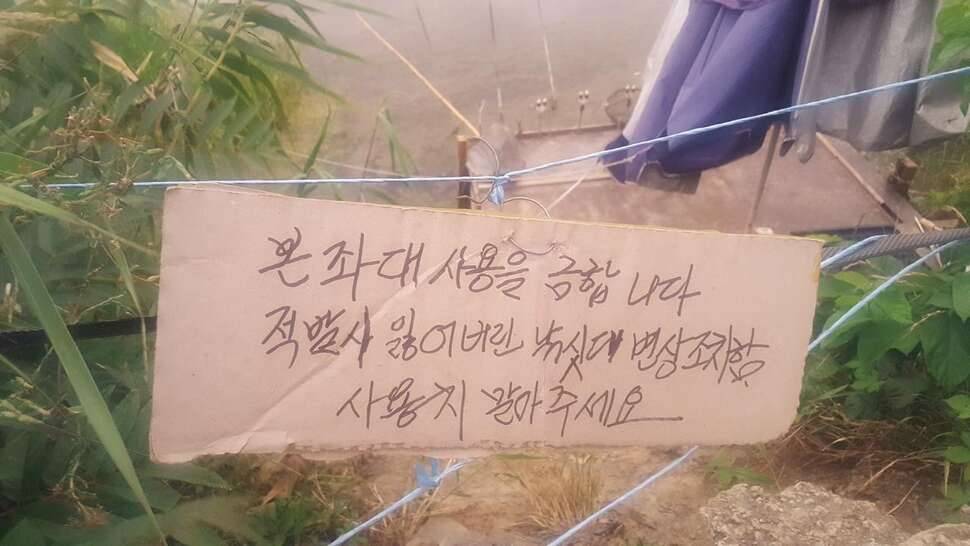 본 좌대 사용을 금합니다
적발시 잃어버린 낚싯대 변상조치함
사용치 말아주세요